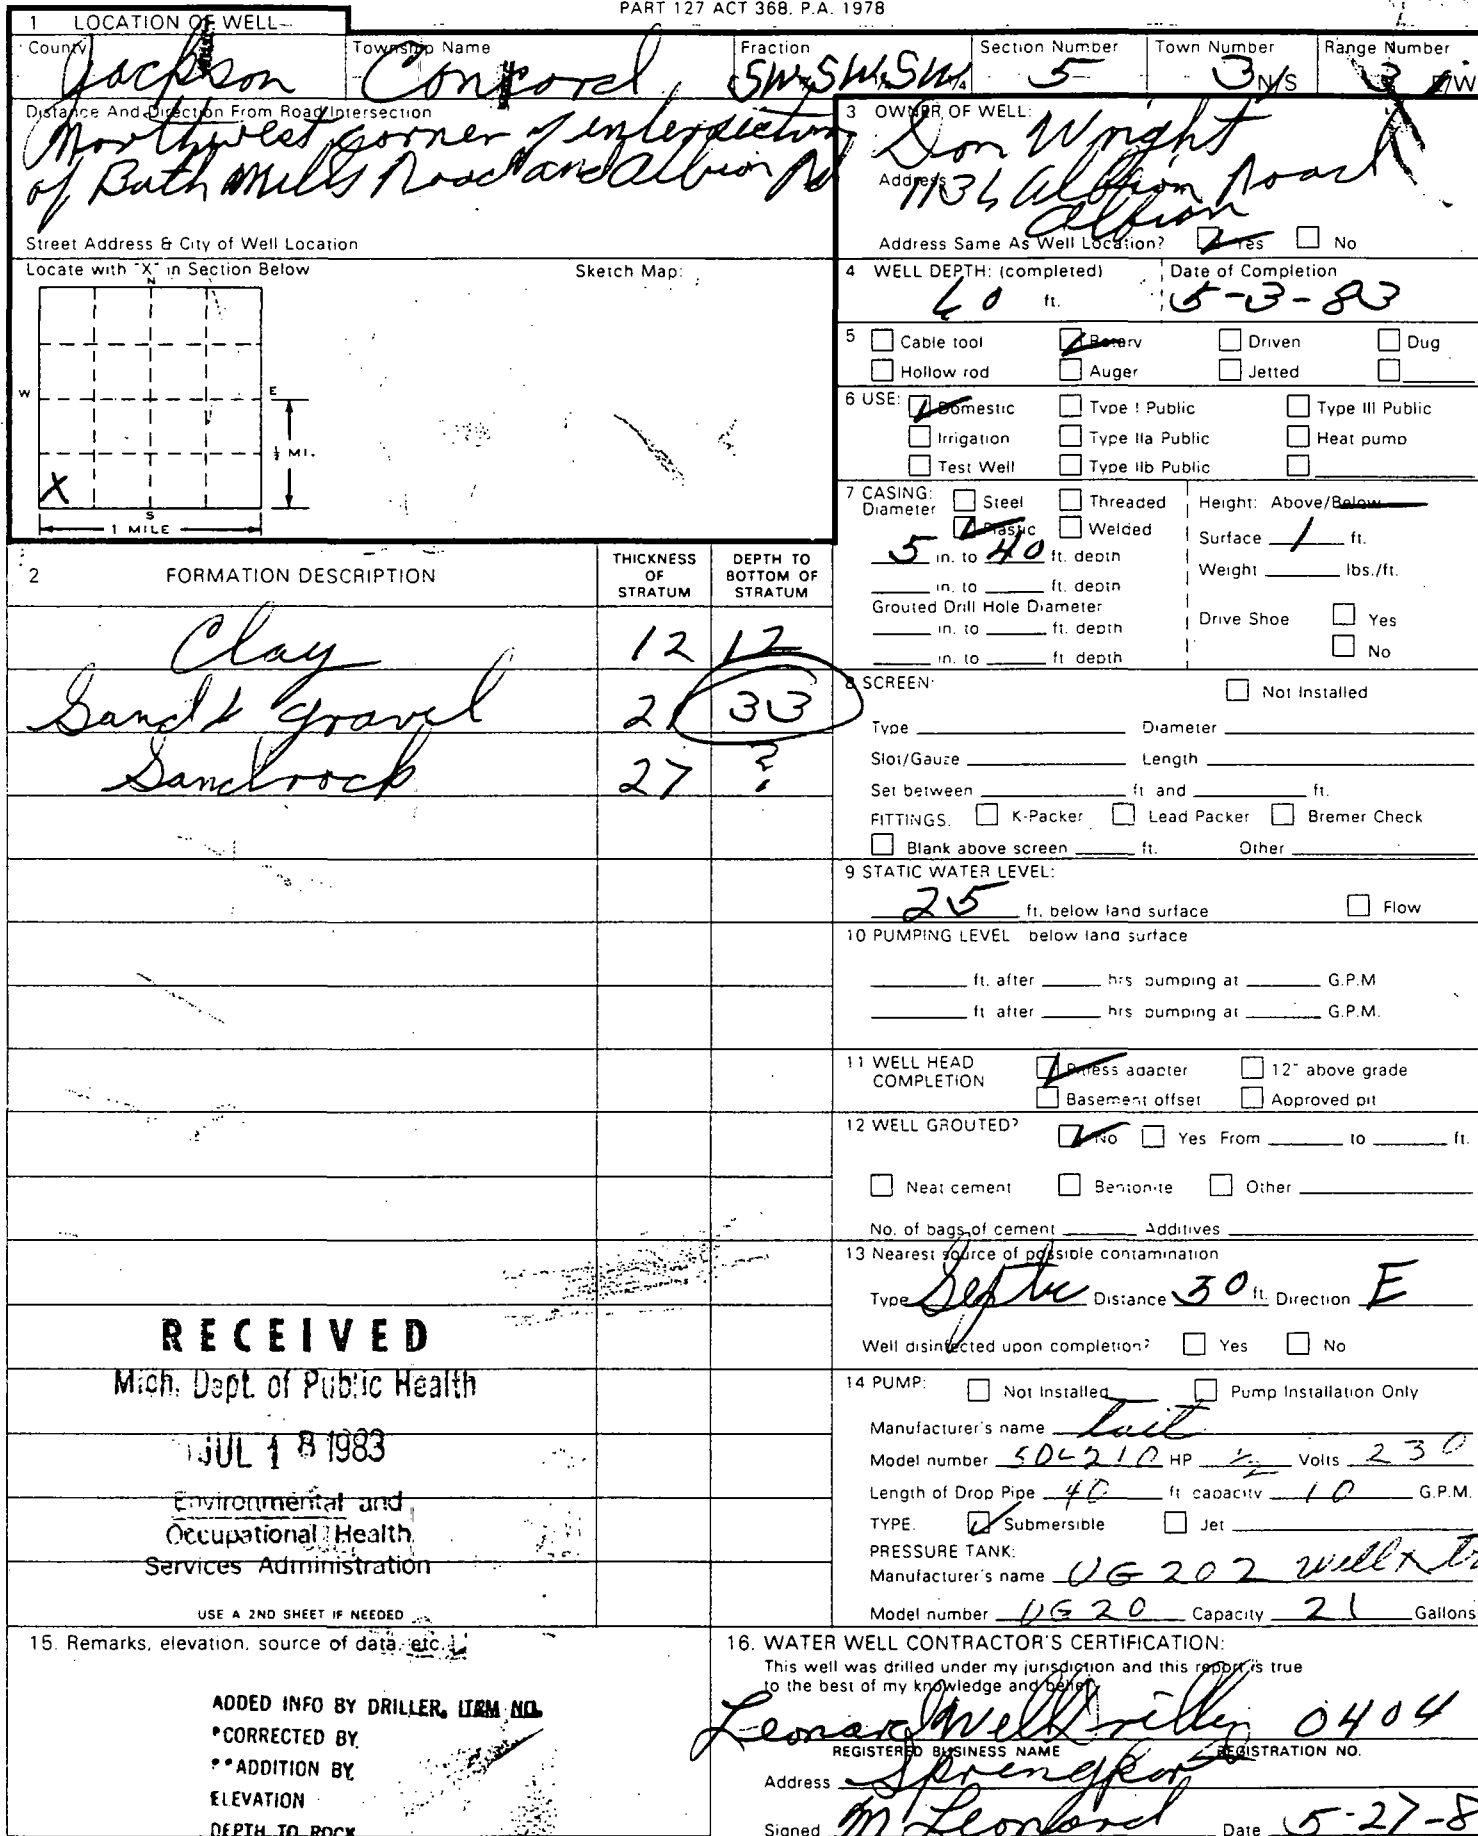 PART 127 ACT 368. P.A. 1978
1 LOCATION OF WELL
County Jackson
Township Name Concord
Fraction SW¼ SW¼ SW¼
Section Number 5
Town Number 3 N/S
Range Number 3 E/W
Distance And Direction From Road Intersection
Northwest corner of intersection
of Bath Mills Road and Albion Rd
Street Address & City of Well Location
Locate with "X" in Section Below
Sketch Map:
N
W
E
S
X
½ MI.
1 MILE
3 OWNER OF WELL:
Don Wright
Address Albion Road
Albion
Address Same As Well Location? Yes No
4 WELL DEPTH: (completed) 60 ft.
Date of Completion 5-3-83
5 Cable tool Rotary Driven Dug
Hollow rod Auger Jetted
6 USE: Domestic Type I Public Type III Public
Irrigation Type IIa Public Heat pump
Test Well Type IIb Public
7 CASING: Steel Threaded
Diameter Plastic Welded
5 in. to 40 ft. depth
in. to ft. depth
Grouted Drill Hole Diameter
in. to ft. depth
in. to ft. depth
Height: Above/Below
Surface 1 ft.
Weight lbs./ft.
Drive Shoe Yes
No
2 FORMATION DESCRIPTION
THICKNESS OF STRATUM
DEPTH TO BOTTOM OF STRATUM
Clay 12 12
Sand & gravel 21 33
Sandrock 27 ?
8 SCREEN: Not Installed
Type Diameter
Slot/Gauze Length
Set between ft and ft.
FITTINGS. K-Packer Lead Packer Bremer Check
Blank above screen ft. Other
9 STATIC WATER LEVEL:
25 ft. below land surface Flow
10 PUMPING LEVEL below land surface
ft. after hrs pumping at G.P.M
ft after hrs pumping at G.P.M.
11 WELL HEAD COMPLETION Pitless adapter 12" above grade
Basement offset Approved pit
12 WELL GROUTED? No Yes From to ft.
Neat cement Bentonite Other
No. of bags of cement Additives
13 Nearest source of possible contamination
Type Septic Distance 30 ft. Direction E
Well disinfected upon completion? Yes No
14 PUMP: Not Installed Pump Installation Only
Manufacturer's name Tait
Model number HP ½ Volts 230
Length of Drop Pipe 40 ft capacity 10 G.P.M.
TYPE. Submersible Jet
PRESSURE TANK:
Manufacturer's name UG 202 well x
Model number UG 20 Capacity 21 Gallons
RECEIVED
Mich. Dept. of Public Health
JUL 18 1983
Environmental and
Occupational Health
Services Administration
USE A 2ND SHEET IF NEEDED
15. Remarks, elevation, source of data, etc.
ADDED INFO BY DRILLER, ITEM NO.
*CORRECTED BY
**ADDITION BY
ELEVATION
DEPTH TO ROCK
16. WATER WELL CONTRACTOR'S CERTIFICATION:
This well was drilled under my jurisdiction and this report is true
to the best of my knowledge and belief.
Leonard Well Drilling 0404
REGISTERED BUSINESS NAME REGISTRATION NO.
Address Springport
Signed M Leonard Date 5-27-8